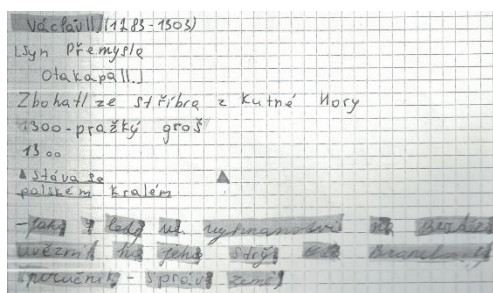 Václav II. (1283-1303)
[syn Přemysla
Otakara II.]
Zbohatl ze stříbra z Kutné Hory
1300 - pražký groš
1300
▲ stává se ▲
polském králém
- jako ledý vyhnanství na
uvěznil ho jeho strýc Branibo
poručník - správ země